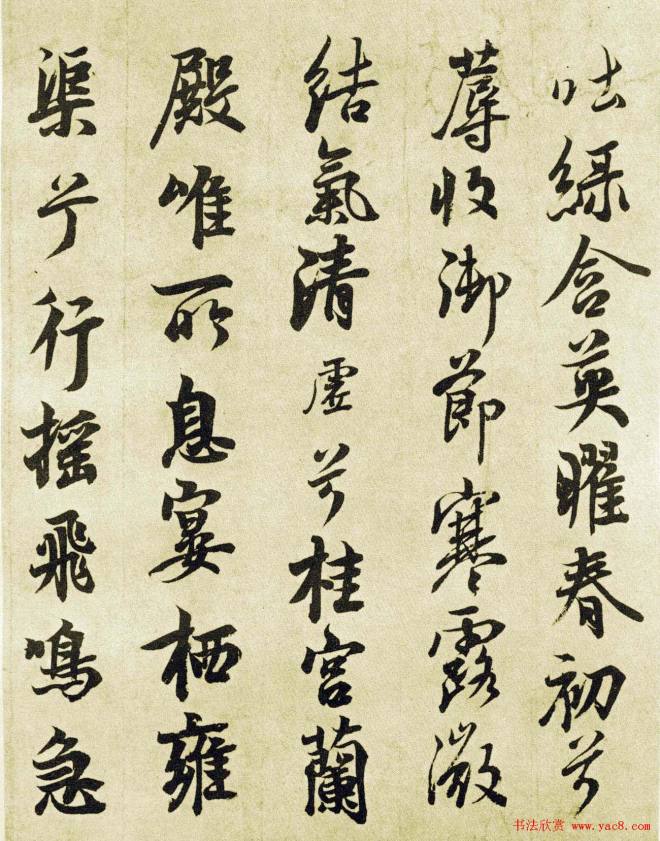 吐綠含英曜春初兮
蓐收御節寒露微
結氣清虛兮桂宮蘭
殿唯所息宴栖雍
渠兮行搖飛鳴急
书法欣赏 www.yac8.com